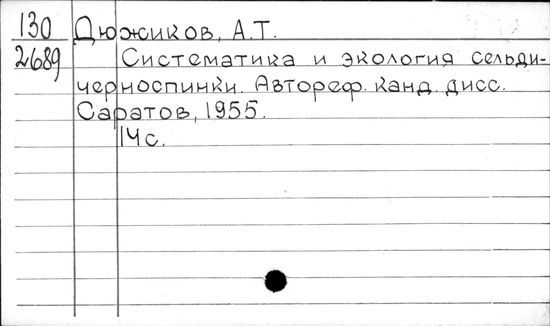 130 Дюжиков, А.Т.
2689 Систематика и экология сельди-
черноспинки. Автореф. канд. дисс.
Саратов, 1955.
14с.